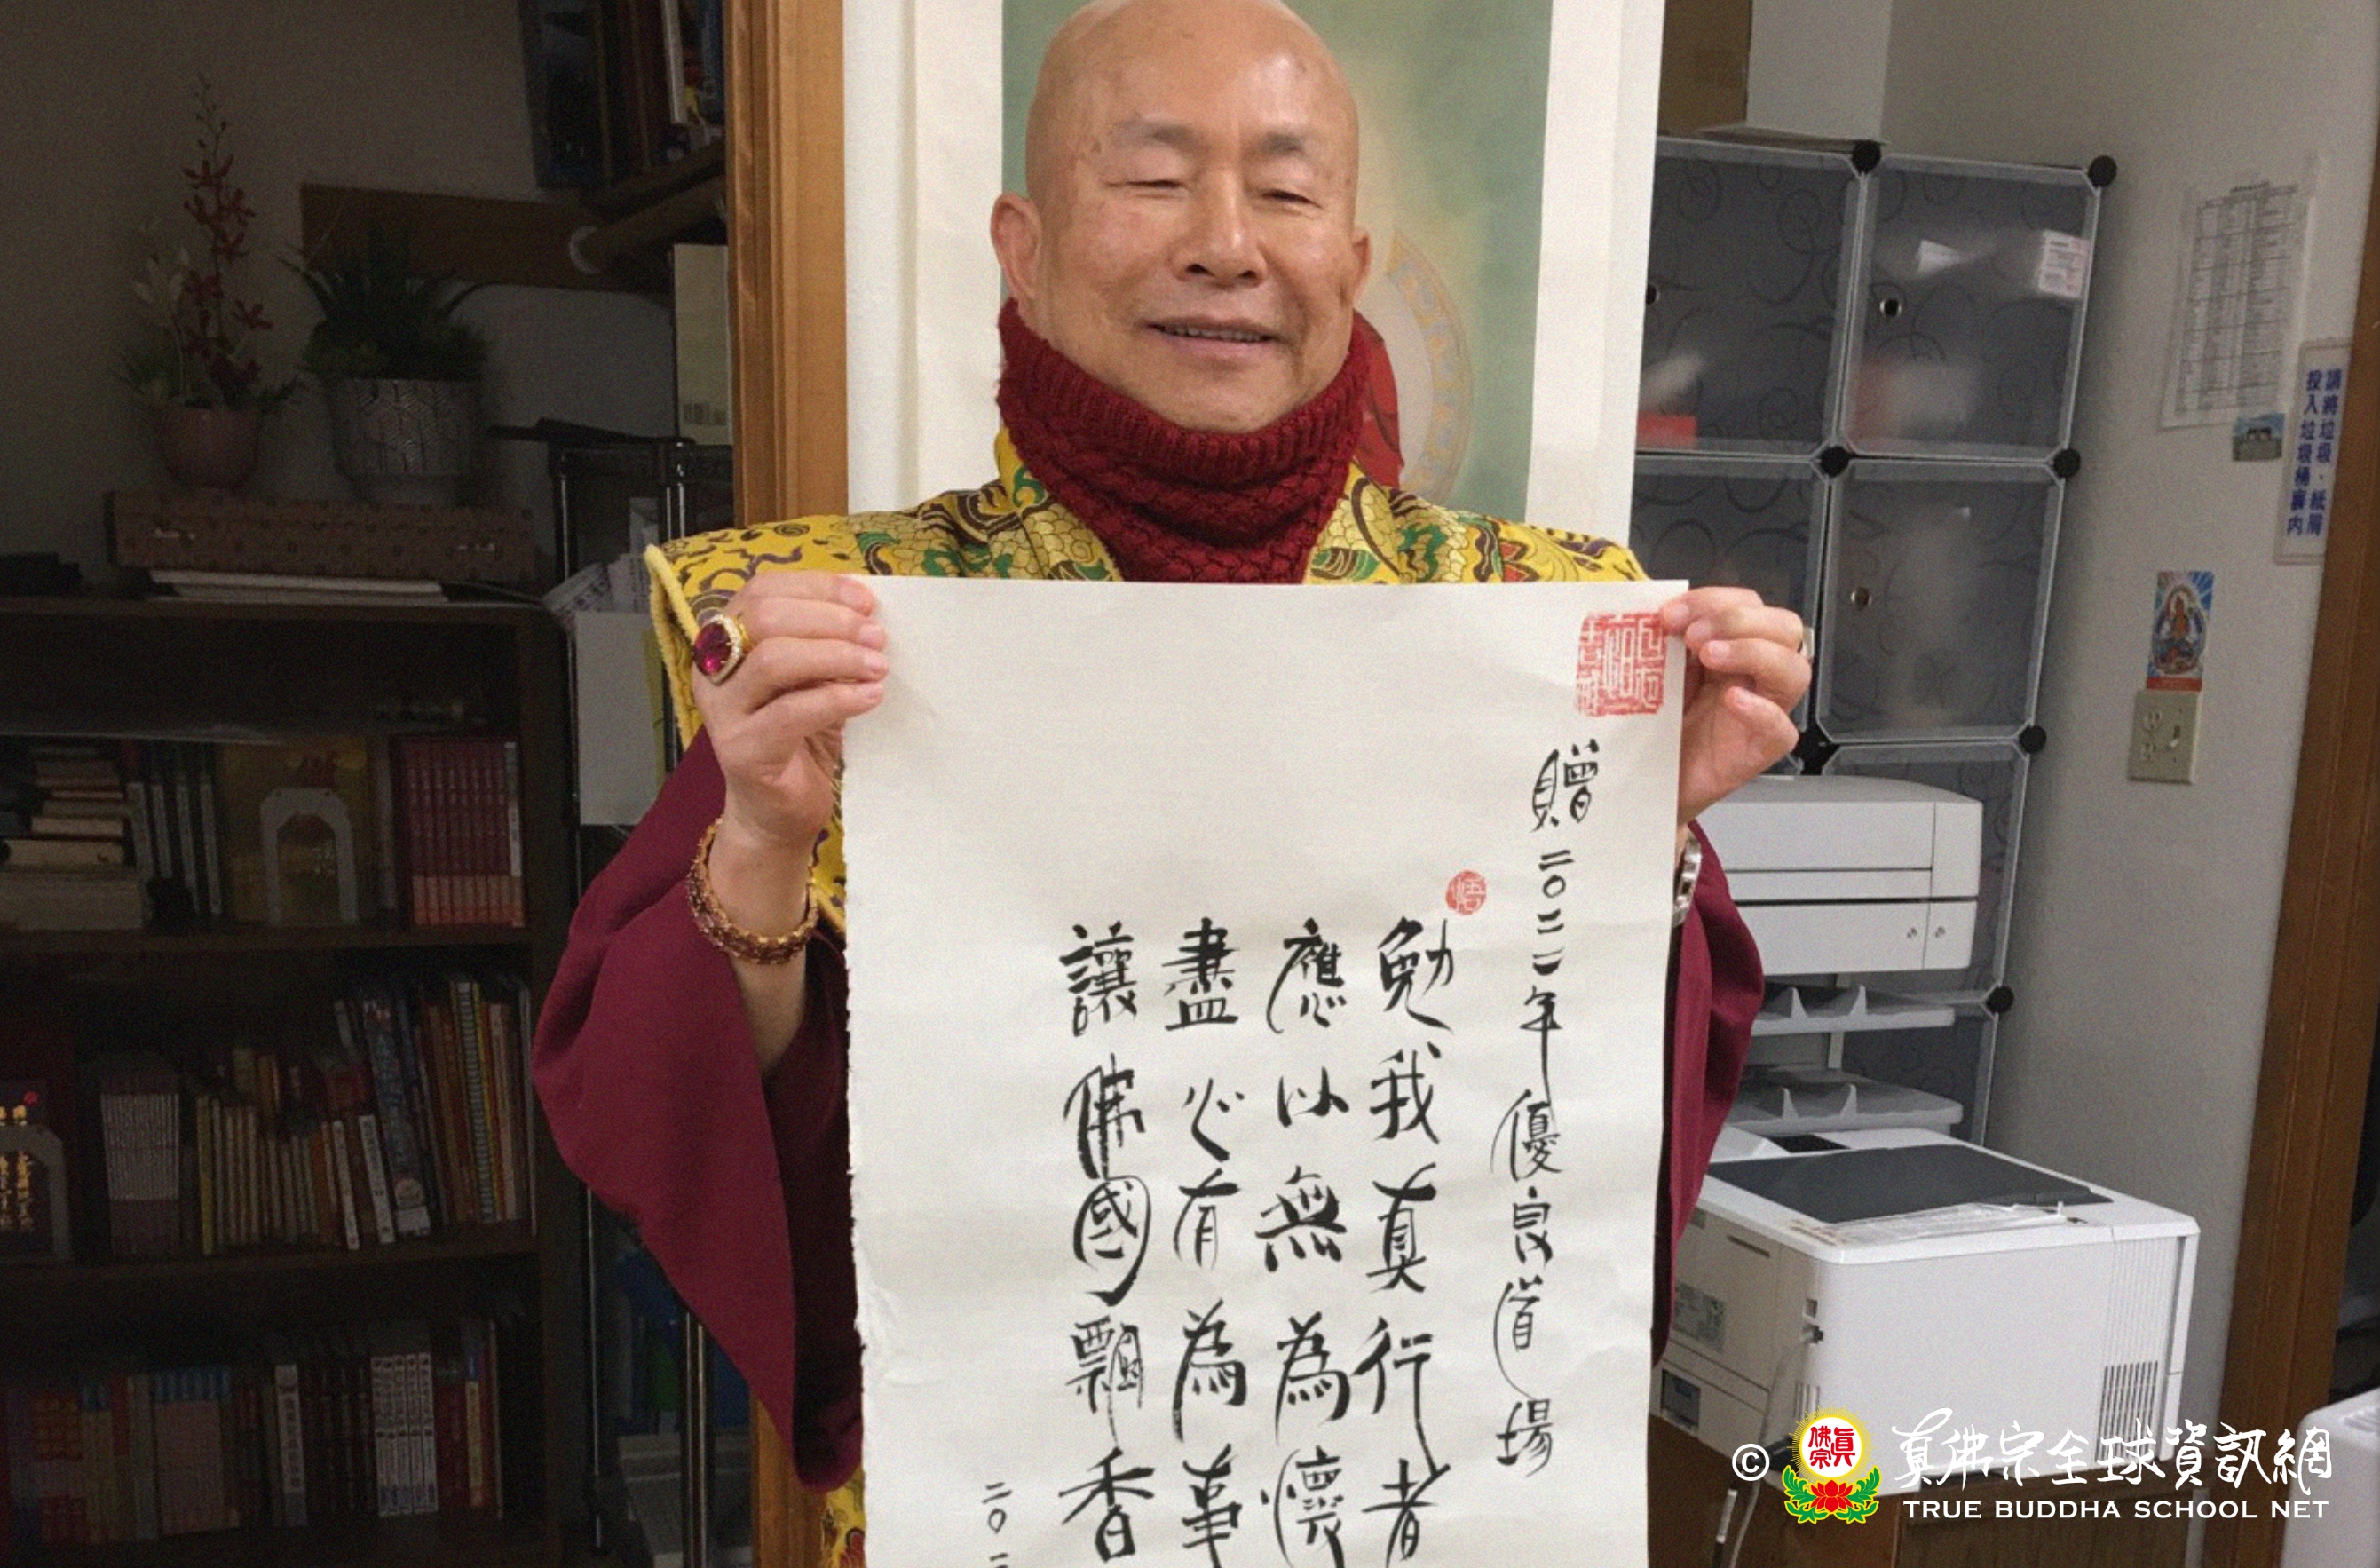 贈二〇二二年優良道場
勉我真行者
應以無為懷
盡心有為事
讓佛國飄香
二〇二
請將垃圾、紙屑
投入垃圾桶裏內
© 真佛宗全球資訊網
TRUE BUDDHA SCHOOL NET